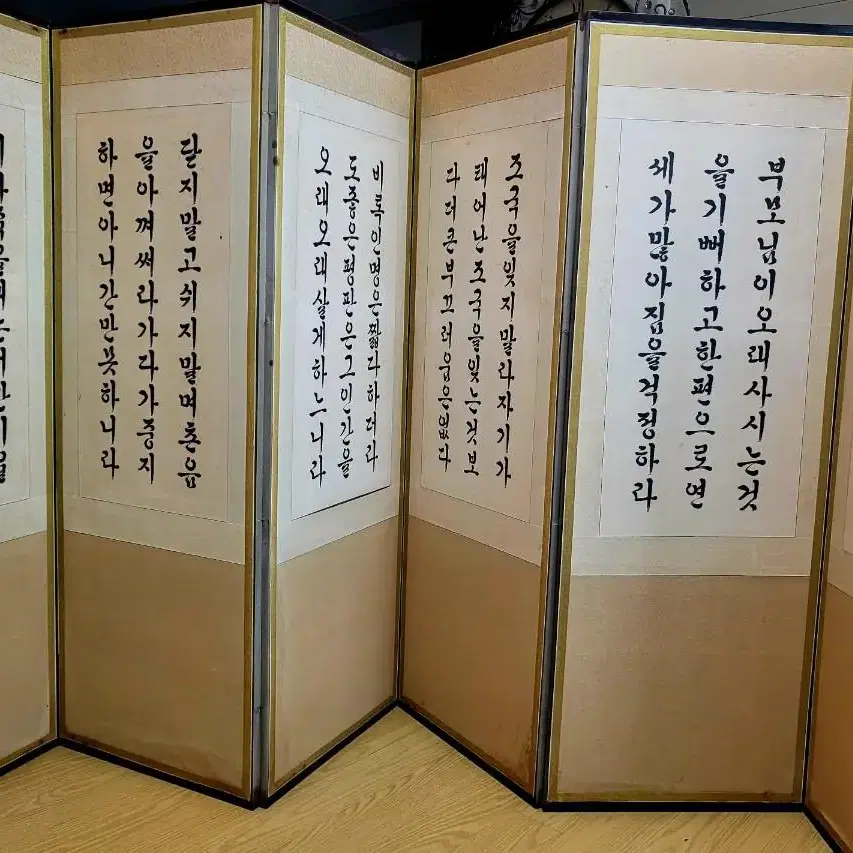 부모님이오래사시는것
을기뻐하고한편으로연
세가많아짐을걱정하라
조국을잊지말라자기가
태어난조국을잊는것보
다더큰부끄러움은없다
비록인명은짧다하더라
도좋은평판은그인간을
오래오래살게하느니라
닫지말고쉬지말며촌음
을아껴써라가다가중지
하면아니간만못하니라